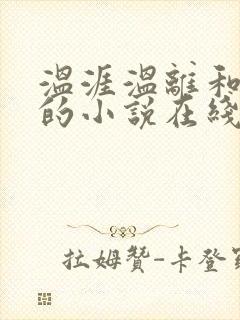 温涯温離和
的小说在綫
拉姆贊-卡登